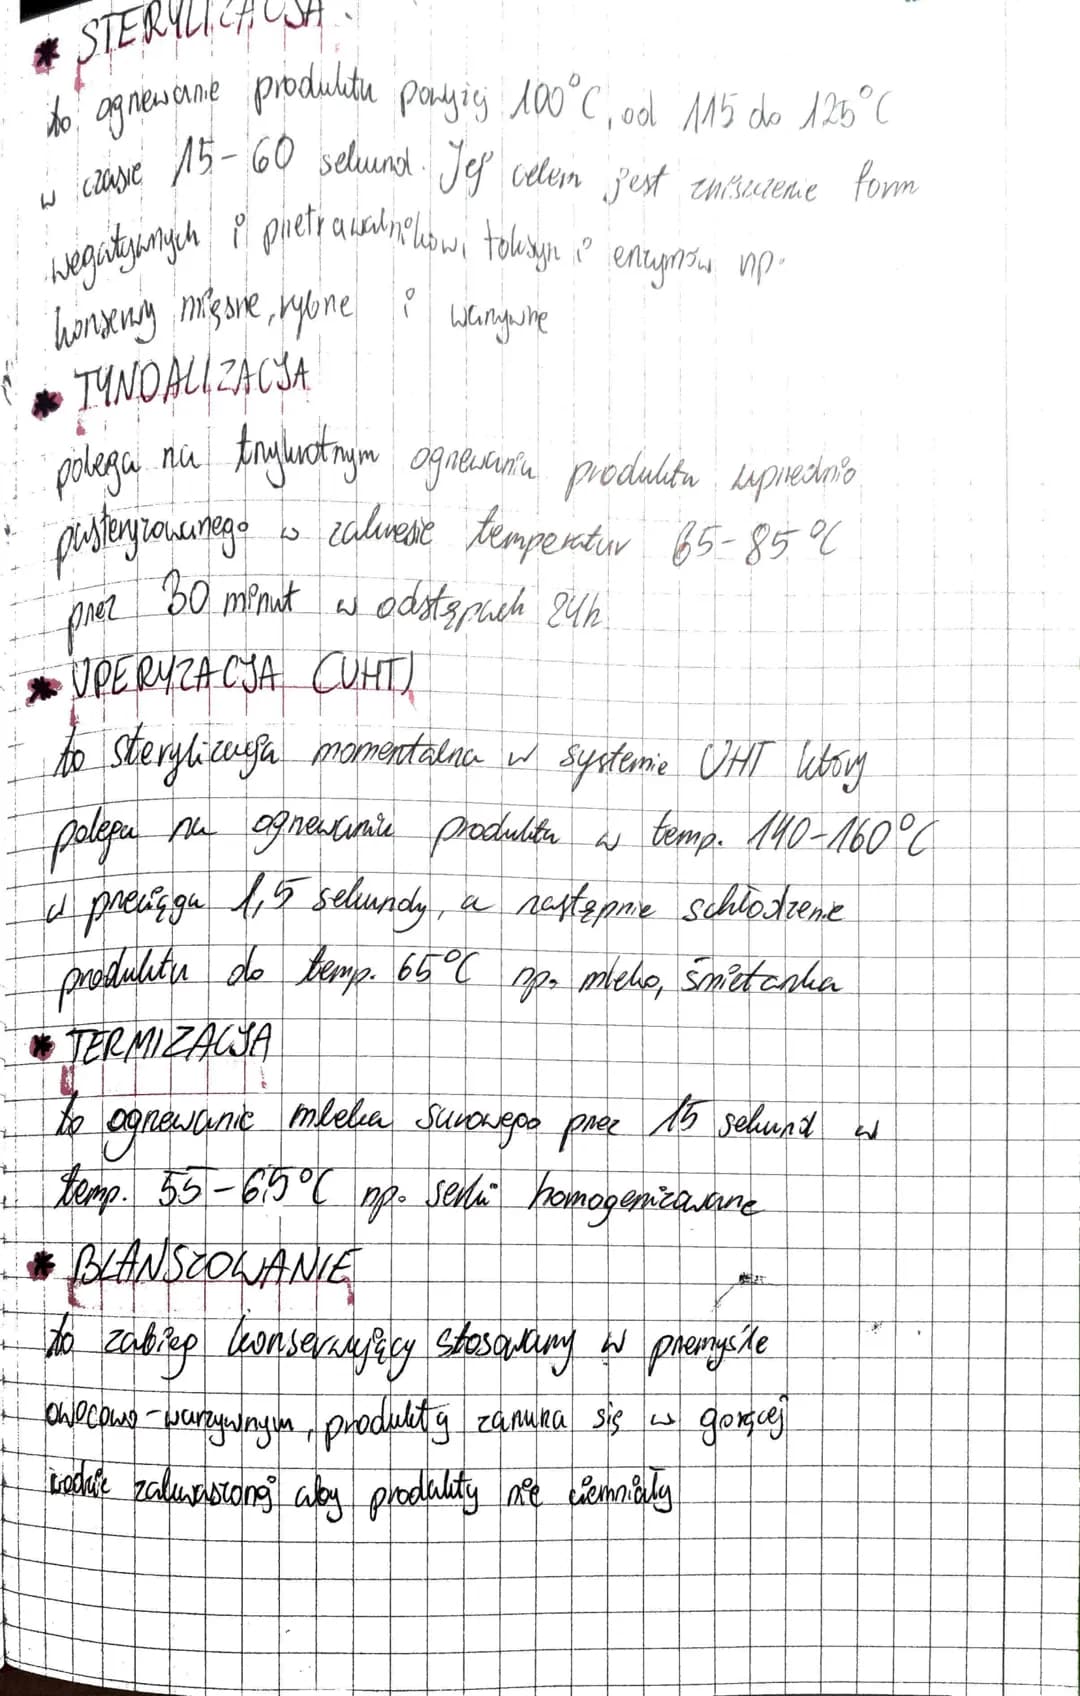 * STERYLIZACJA
to ogrzewanie produktu powyżej 100°C, od 115 do 125°C
w czasie 15-60 sekund. Jej celem jest zniszczenie form
wegatywnych i przetrawalników, toksyn i enzymów np.
konserwy mięsne, rybne i warzywne
* TYNDALIZACJA
polega na trzykrotnym ogrzewaniu produktu uprzednio
pasteryzowanego w zakresie temperatur 65-85°C
przez 30 minut w odstępach 24h
* UPERYZACJA (UHT)
to sterylizacja momentalna w systemie UHT który
polega na ogrzewaniu produktu w temp. 140-160°C
w przeciągu 1,5 sekundy, a następnie schłodzenie
produktu do temp. 65°C np. mleko, śmietanka
* TERMIZACJA
to ogrzewanie mleka surowego przez 15 sekund w
temp. 55-65°C np. serki homogenizowane
* BLANSZOWANIE
to zabieg konserwujący stosowany w przemyśle
owocowo-warzywnym, produkty zanurza się w gorącej
wodzie zakwaszonej aby produkty nie ciemniały